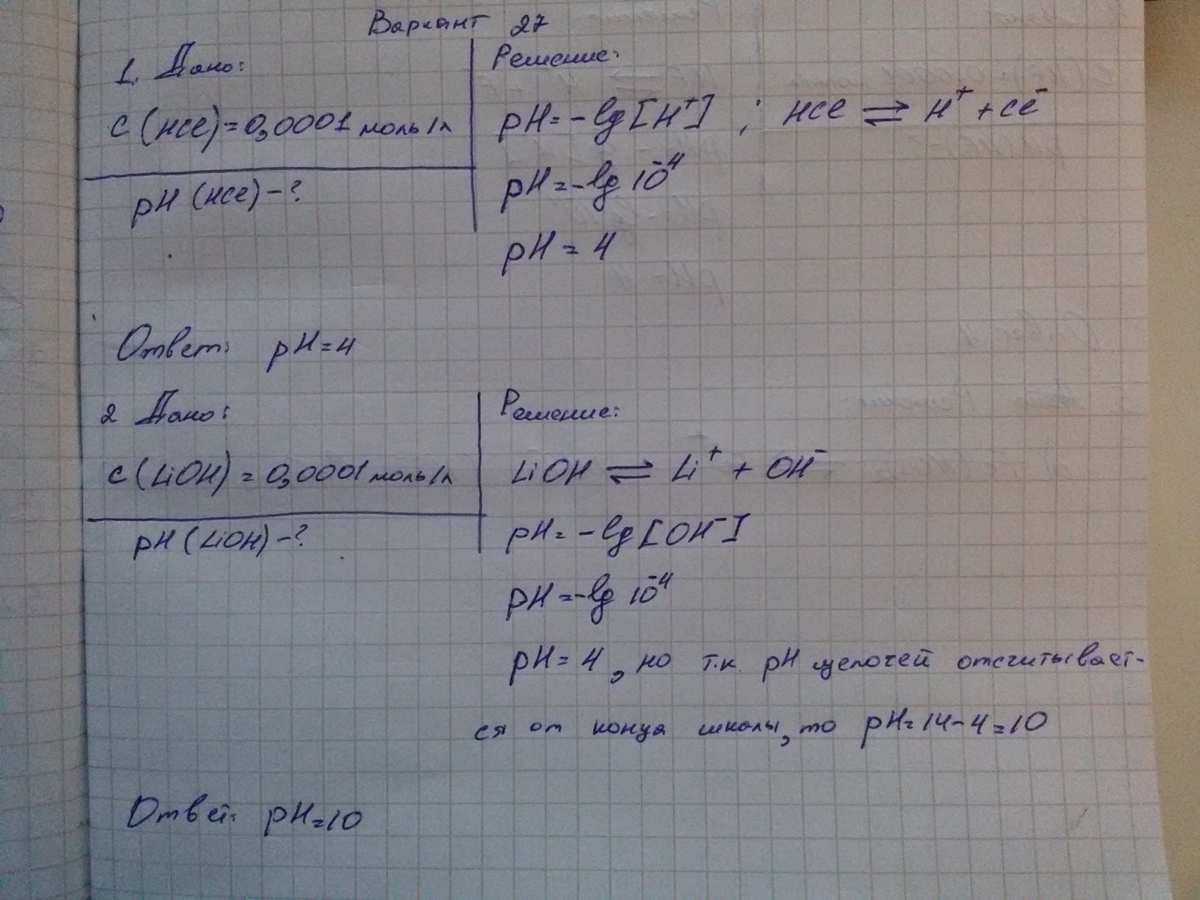 Вариант 27
1. Дано:
C (HCl) = 0,0001 моль/л
pH (HCl) – ?
Решение:
pH = –lg [H⁺] ; HCl ⇌ H⁺ + Cl⁻
pH = –lg 10⁻⁴
pH = 4
Ответ: pH = 4
2 Дано:
C (LiOH) = 0,0001 моль/л
pH (LiOH) – ?
Решение:
LiOH ⇌ Li⁺ + OH⁻
pH = –lg [OH⁻]
pH = –lg 10⁻⁴
pH = 4, но т.к. pH щелочей отсчитывает-
ся от конца шкалы, то pH = 14 – 4 = 10
Ответ: pH = 10